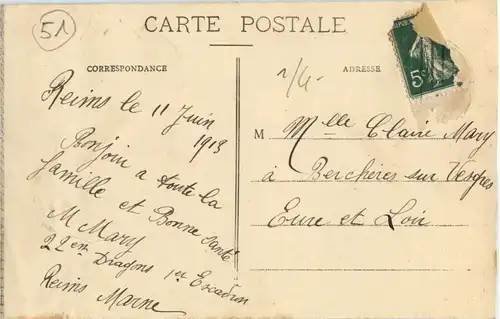 51
CARTE POSTALE
CORRESPONDANCE
Reims le 11 Juin
1913
Bonjour a toute la
famille et Bonne santé
M Mary
22 em Dragons 1er Escadron
Reims Marne
ADRESSE
M Melle Claire Mary
à Berchères sur Vesgres
Eure et Loir
5c